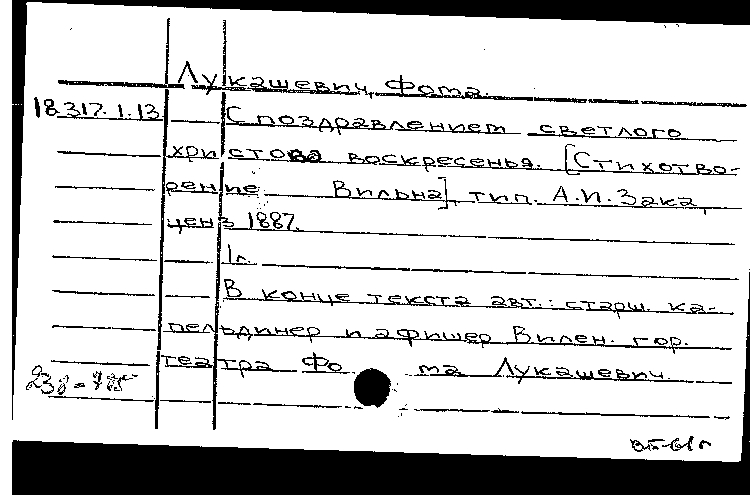 Лукашевич, Фома.
18.317.1.13 С поздравлением светлого
христова воскресенья. [Стихотво-
рение Вильна], тип. А.И. Зака,
ценз 1887.
1л.
В конце текста авт.: старш. ка-
пельдинер и афишер Вилен. гор.
театра Фома Лукашевич.